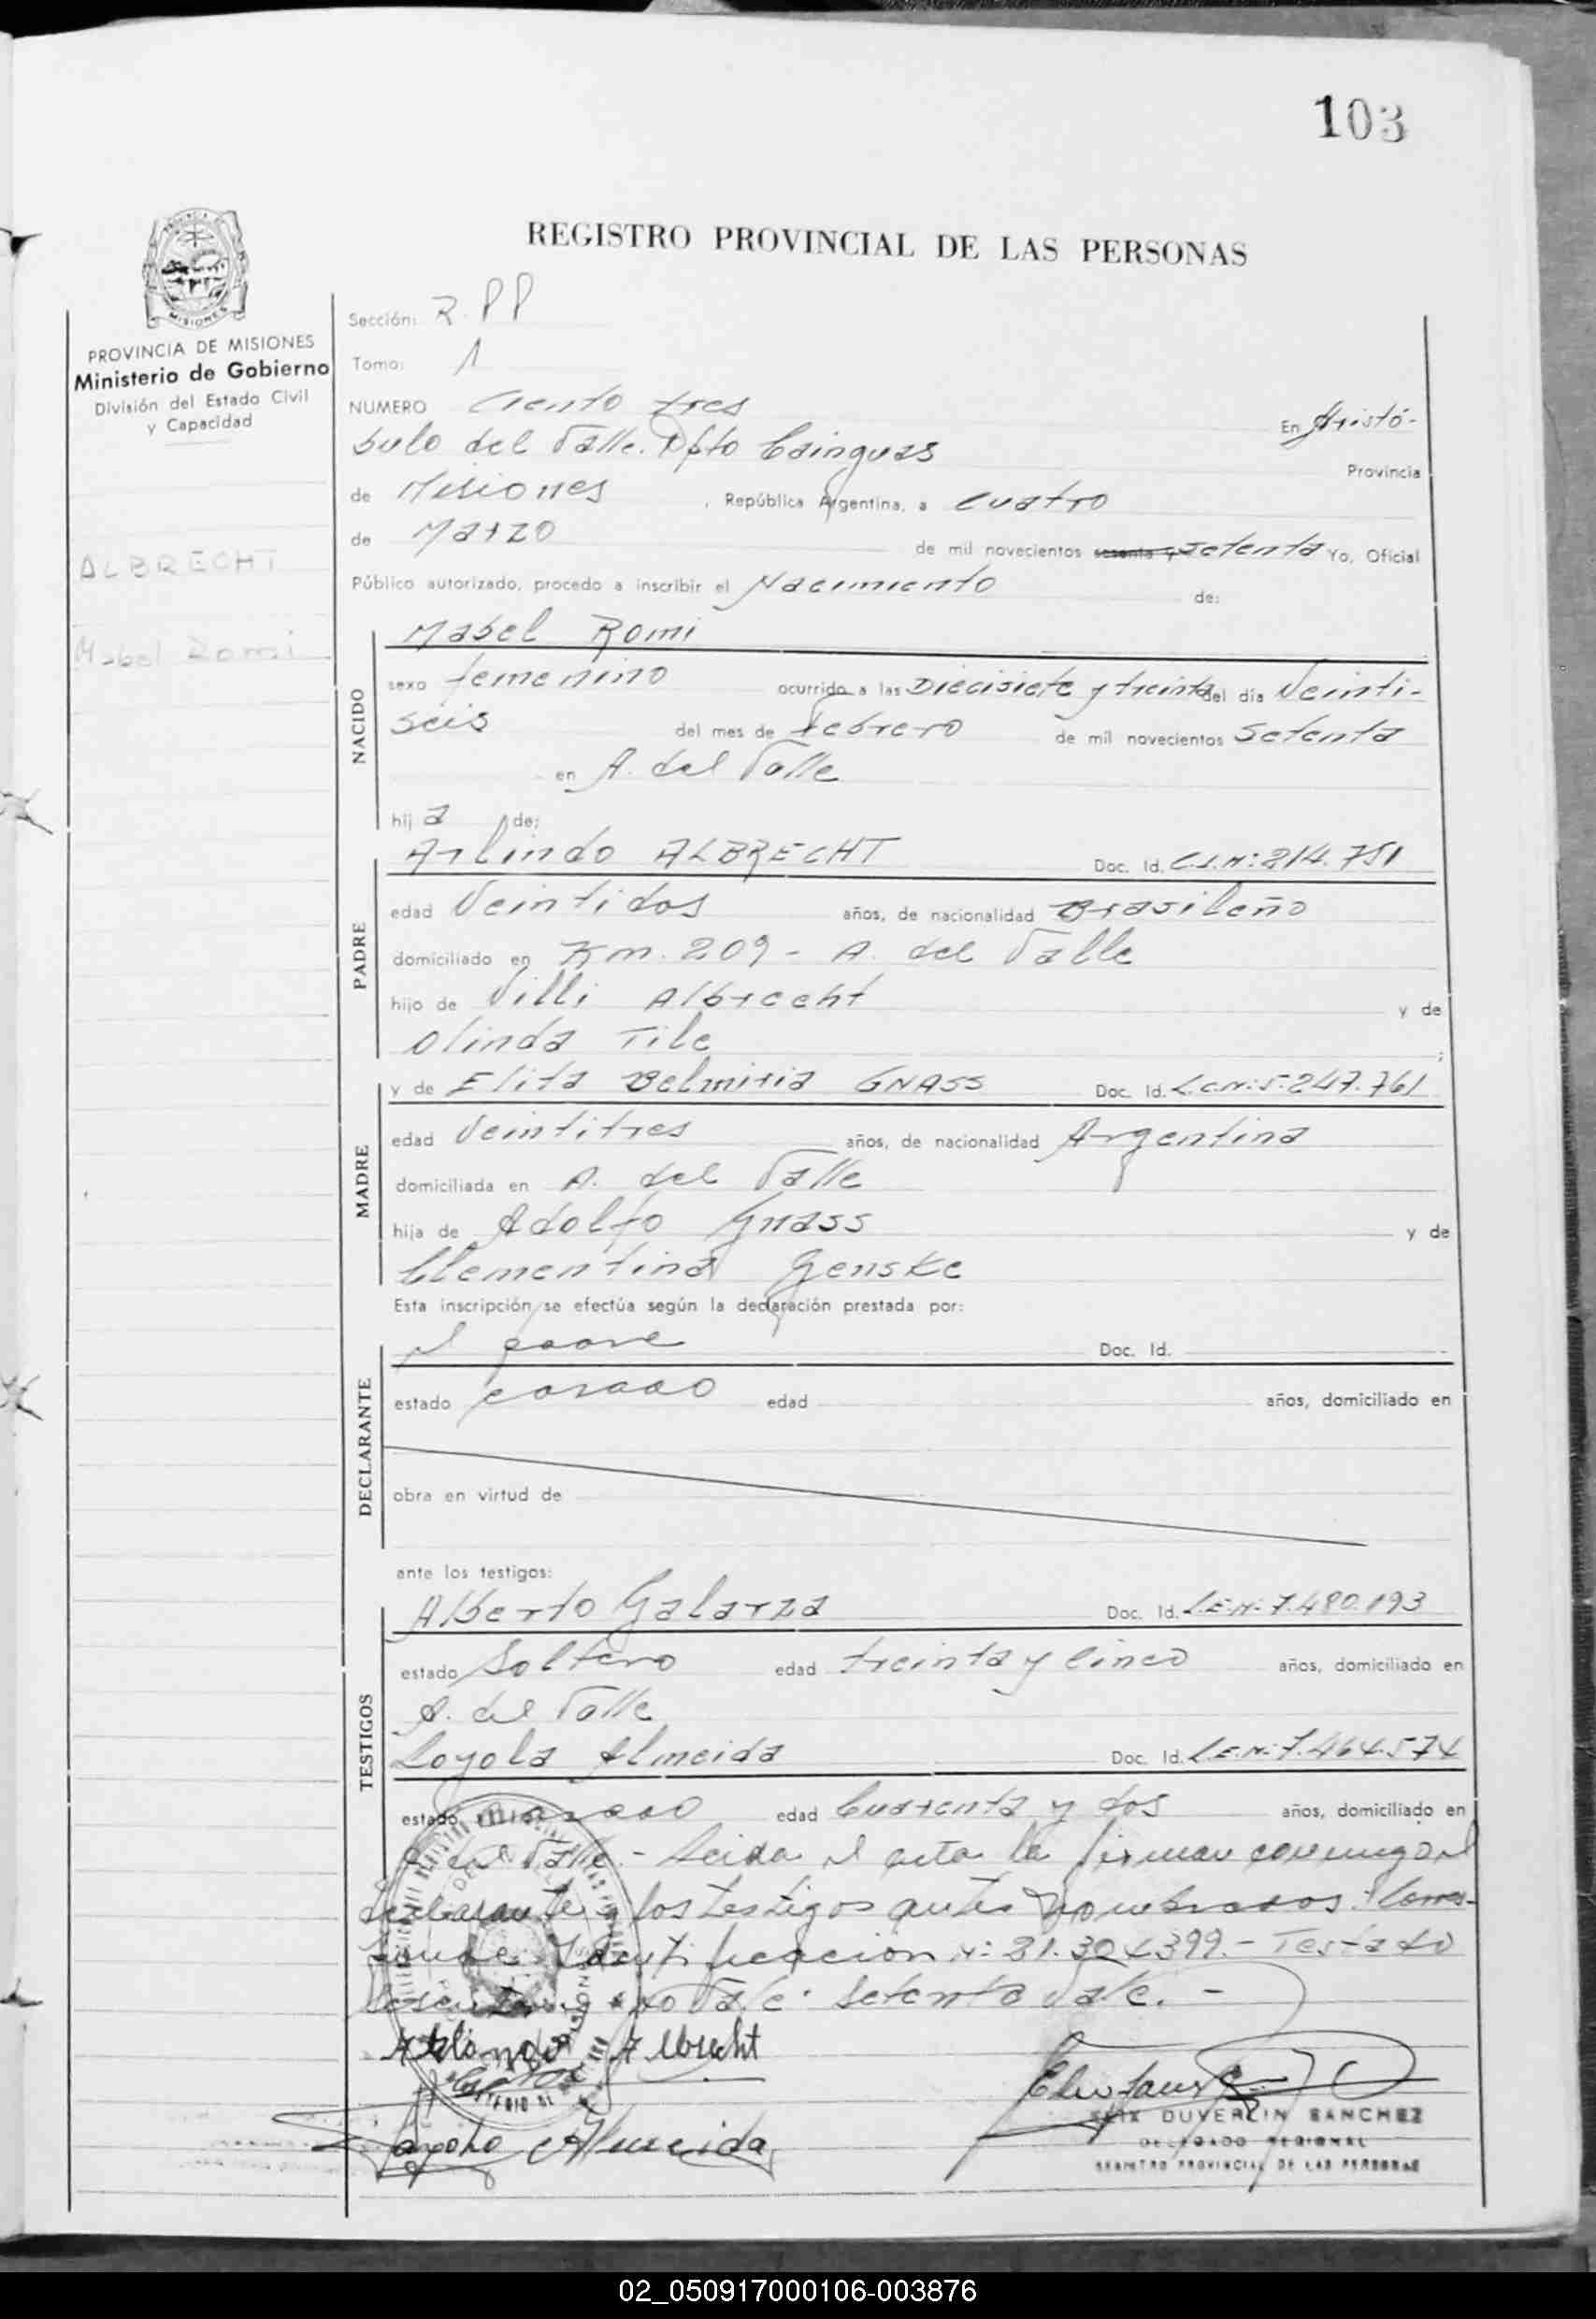 103
REGISTRO PROVINCIAL DE LAS PERSONAS
PROVINCIA DE MISIONES
Ministerio de Gobierno
División del Estado Civil
y Capacidad
ALBRECHT
Mabel Romi
Sección: R.PP
Tomo: 1
NUMERO Ciento tres En Aristó-
bulo del Valle. Dpto Cainguas Provincia
de Misiones , República Argentina, a cuatro
de Marzo de mil novecientos sesenta y setenta Yo, Oficial
Público autorizado, procedo a inscribir el Nacimiento de:
NACIDO
Mabel Romi
sexo femenino ocurrido a las Diecisiete y treinta del día Veinti-
seis del mes de Febrero de mil novecientos Setenta
en A. del Valle
hij a de:
PADRE
Arlindo ALBRECHT Doc. Id. C.I.N: 214.751
edad Veintidos años, de nacionalidad Brasileño
domiciliado en Km. 209 - A. del Valle
hijo de Villi Albrecht y de
Olinda Tile ;
MADRE
y de Elita Belmiria GNASS Doc. Id. L.C.N: 5.247.761
edad Veintitres años, de nacionalidad Argentina
domiciliada en A. del Valle
hija de Adolfo Gnass y de
Clementina Genske
Esta inscripción se efectúa según la declaración prestada por:
DECLARANTE
el padre Doc. Id.
estado casado edad años, domiciliado en
obra en virtud de
ante los testigos:
TESTIGOS
Alberto Galarza Doc. Id. L.E.N: 7.480.193
estado Soltero edad treinta y cinco años, domiciliado en
A. del Valle
Loyola Almeida Doc. Id. L.E.N: 7.464.574
estado casado edad Cuarenta y dos años, domiciliado en
A. del Valle.- Leida el acta la firman conmigo el
declarante y los testigos antes nombrados. Corres-
ponde Identificación N: 21.304.399.- Testado
sesenta y no Vale. Setenta Vale.-
Arlindo Albrecht
Loyola Almeida
FELIX DUVERLIN SANCHEZ
DELEGADO REGIONAL
REGISTRO PROVINCIAL DE LAS PERSONAS
02_050917000106-003876